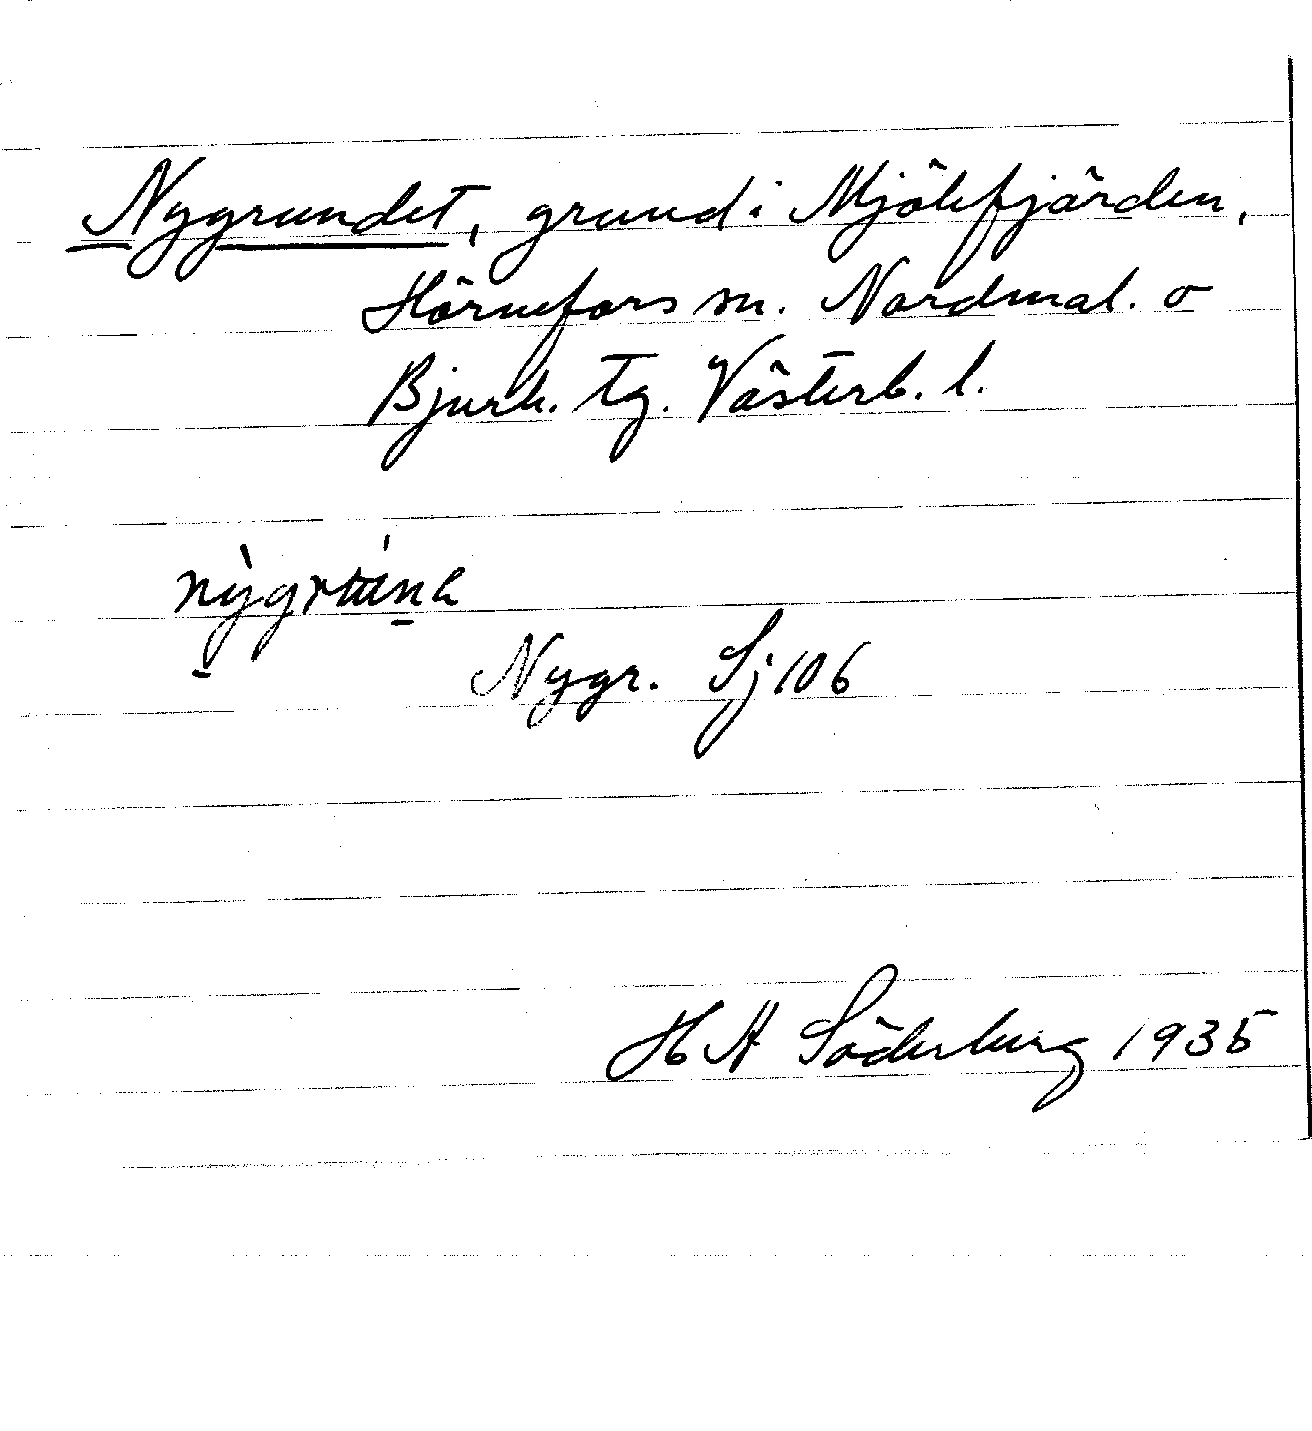 Nygrundet, grund i Mjölefjärden,
Hörnefors sn. Nordmal. o
Bjurh. tg. Västerb. l.
Nygr. Sj 106
H A Söderberg 1935